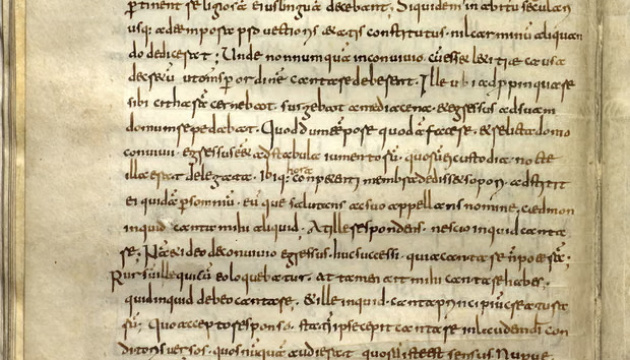 ꝑtinent & religiosā eius linguā decebant. Siquidem in habitu seculari
usq; ad tempora ꝓvectioris ætatis constitutus. nil carminū aliquan
do didicerat; Unde nonnumquā in convivio. cū esset lætitiæ causa
decretū ut omnes ꝑ ordinē cantare deberent. Ille ubi adpropinquare
sibi citharā cernebat. surgebat a media cena. & egressus ad suam
domum repedabat. Quod dum tēpore quodā faceret. & relicta domo
convivii. egressus ēēt ad stabula iumentorū. quorū ei custodia nocte
illa erat delegata. Ibiq; hora conpetenti membra dedisset sopori. adstitit
ei quidā ꝑ somniū. eūque salutans ac suo appellans nomine. cædmon
inquid canta mihi aliquid. At ille respondens. nescio inquid canta
re; Nā & ideo de convivio egressus. huc successi. quia cantare ñ poterā;
Rursū ille qui cū eo loquebatur. at tamen ait mihi cantare habes.
quid inquid debeo cantare. & ille inquid. canta principiū creatura
rū; Quo accepto responso. statim ipse cepit cantare in laudem di con
ditoris versos. quos nūquā audierat quorū iste est sensus Nunc